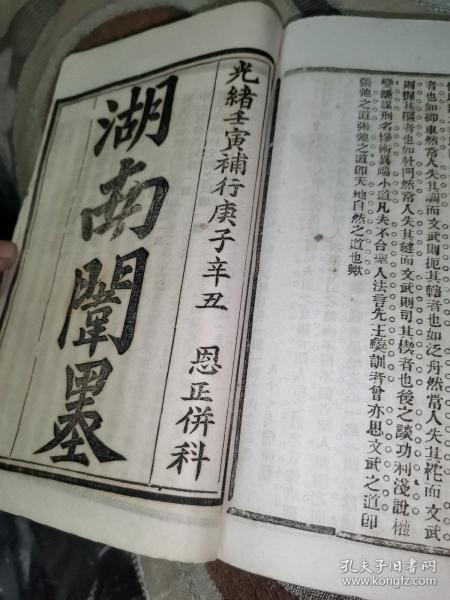 者也如御車然常人失其調而文武則扼其轄者也如泛舟然常人失其柁而文武
則握其樞者也如杜門然常人失其鍵而文武則司其楔者也後之談功利淺說權
變議謀刑名慘術異端小道凡夫不合聖人法言先王彝訓者曾亦思文武之道即
張弛之道張弛之道即天地自然之道也歟
光緒壬寅補行庚子辛丑 恩正併科
湖南闈墨
孔夫子旧书网
www.kongfz.com